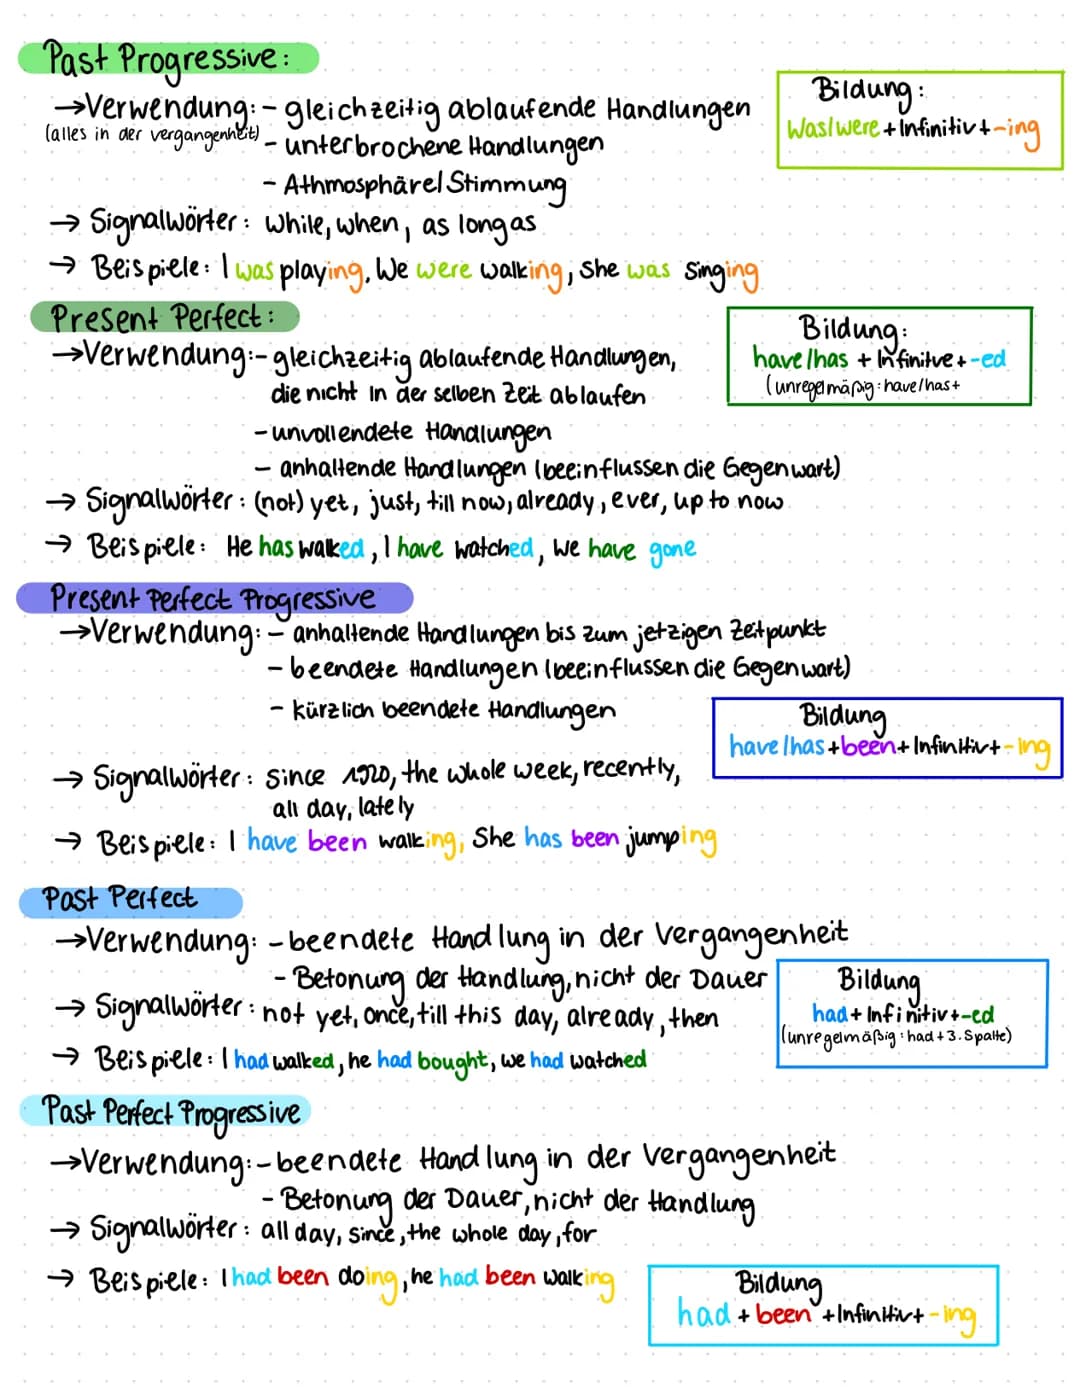 Past Progressive:
→Verwendung: - gleichzeitig ablaufende Handlungen
(alles in der vergangenheit) - unterbrochene Handlungen
- Athmosphäre/Stimmung
→ Signalwörter: While, when, as long as
→ Beispiele: I was playing, We were walking, She was singing
Bildung:
Was/were + Infinitiv + -ing
Present Perfect:
→Verwendung:- gleichzeitig ablaufende Handlungen,
die nicht in der selben Zeit ablaufen
- unvollendete Handlungen
- anhaltende Handlungen (beeinflussen die Gegenwart)
→ Signalwörter: (not) yet, just, till now, already, ever, up to now
→ Beispiele: He has walked, I have watched, We have gone
Bildung:
have/has + Infinitve + -ed
(unregelmäßig: have/has+
Present Perfect Progressive
→Verwendung: - anhaltende Handlungen bis zum jetzigen Zeitpunkt
- beendete Handlungen (beeinflussen die Gegenwart)
- kürzlich beendete Handlungen
→ Signalwörter: since 1920, the whole week, recently,
all day, lately
→ Beispiele: I have been walking, She has been jumping
Bildung
have/has + been + Infinitiv + -ing
Past Perfect
→Verwendung: - beendete Handlung in der Vergangenheit
- Betonung der Handlung, nicht der Dauer
→ Signalwörter: not yet, once, till this day, already, then
→ Beispiele: I had walked, he had bought, we had watched
Bildung
had + Infinitiv + -ed
(unregelmäßig: had + 3. Spalte)
Past Perfect Progressive
→Verwendung:- beendete Handlung in der Vergangenheit
- Betonung der Dauer, nicht der Handlung
→ Signalwörter: all day, since, the whole day, for
→ Beispiele: I had been doing, he had been walking
Bildung
had + been + Infinitiv + -ing